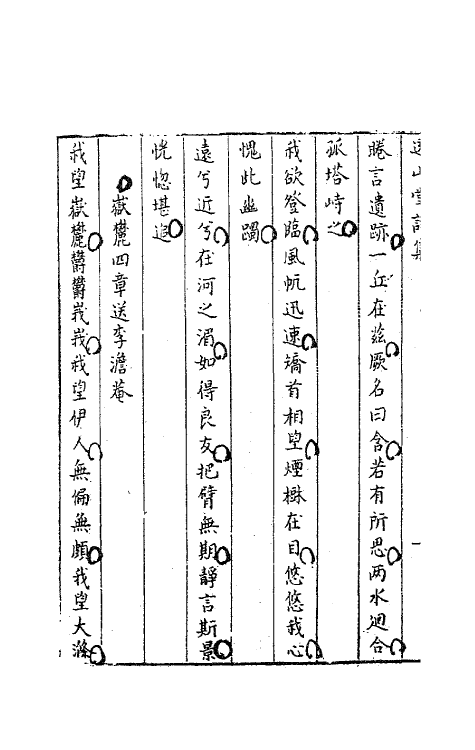 遠山堂詩集 一
睠言遺跡一丘在茲厥名曰含若有所思两水廻合
孤塔峙之
我欲登臨風帆迅速矯首相望煙樹在目悠悠我心
愧此幽躅
遠兮近兮在河之湄如得良友把臂無期靜言斯景
恍惚堪追
嶽麓四章送李澹菴
我望嶽麓欝欝峩峩我望伊人無偏無頗我望大滌